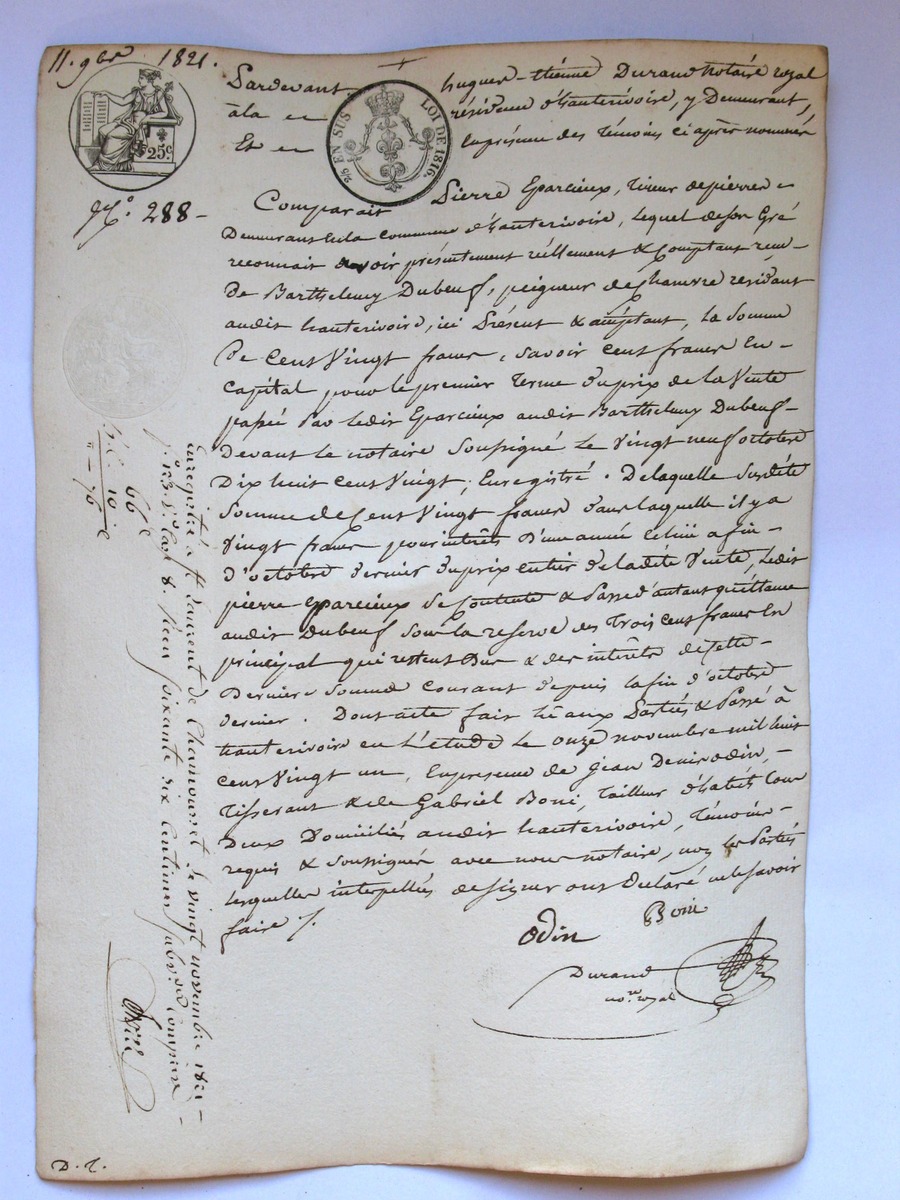 11. 9bre 1821.
Pardevant hugues-étienne Durand Notaire royal
à la résidence d'hauterivoire, y Demeurant,
Et en présence des témoins ci après nommés
25c.
25 EN SUS LOI DE 1816.
No. 288 -
Comparait Pierre Eparcieux, tireur de pierres
Demeurant en la Commune d'hauterivoire, lequel de son Gré
reconnait avoir présentement réellement & Comptant reçu
de Barthelemy Dubeuf, peigneur de Chanvre résidant
audit hauterivoire, ici Présent & acceptant, la Somme
de Cent Vingt francs, savoir cent francs En
Capital pour le premier terme du prix de la Vente
passée Par ledit Eparcieux audit Barthelemy Dubeuf
Devant le notaire Soussigné le Vingt neuf octobre
Dix huit Cent Vingt, Enregistré. De laquelle Susdite
Somme de Cent Vingt francs dans laquelle il y a
Vingt francs pour intérêts D'une année Echue a fin
d'octobre dernier du prix entier de la dite Vente, Ledit
pierre Eparcieux Se Contente & Passe d'autant quittance
audit Dubeuf Sous la reserve des Trois cent francs En
principal qui restent Dus & des intérêts de Cette
Derniere Somme Courant depuis la fin d'octobre
dernier. Dont acte fait Lu aux Parties & Passé à
hauterivoire en L'étude le onze novembre mil huit
cent Vingt un, En presence de Jean Denis odin,
Tisserant & de Gabriel Boni, Tailleur d'habits tous
Deux Domiciliés audit hauterivoire, Témoins
requis & Soussignés avec nous notaire, non les Parties
lesquelles interpellées de signer ont Declaré ne le Savoir
faire /.
odin Boni
Durand
no.re royal
66 c
10
- 76
Enregistré à St Laurent de Chamousset le vingt novembre 1821
f.o 123 v.o Case 8. Reçu soixante six centimes subv.on comprise
D. t.